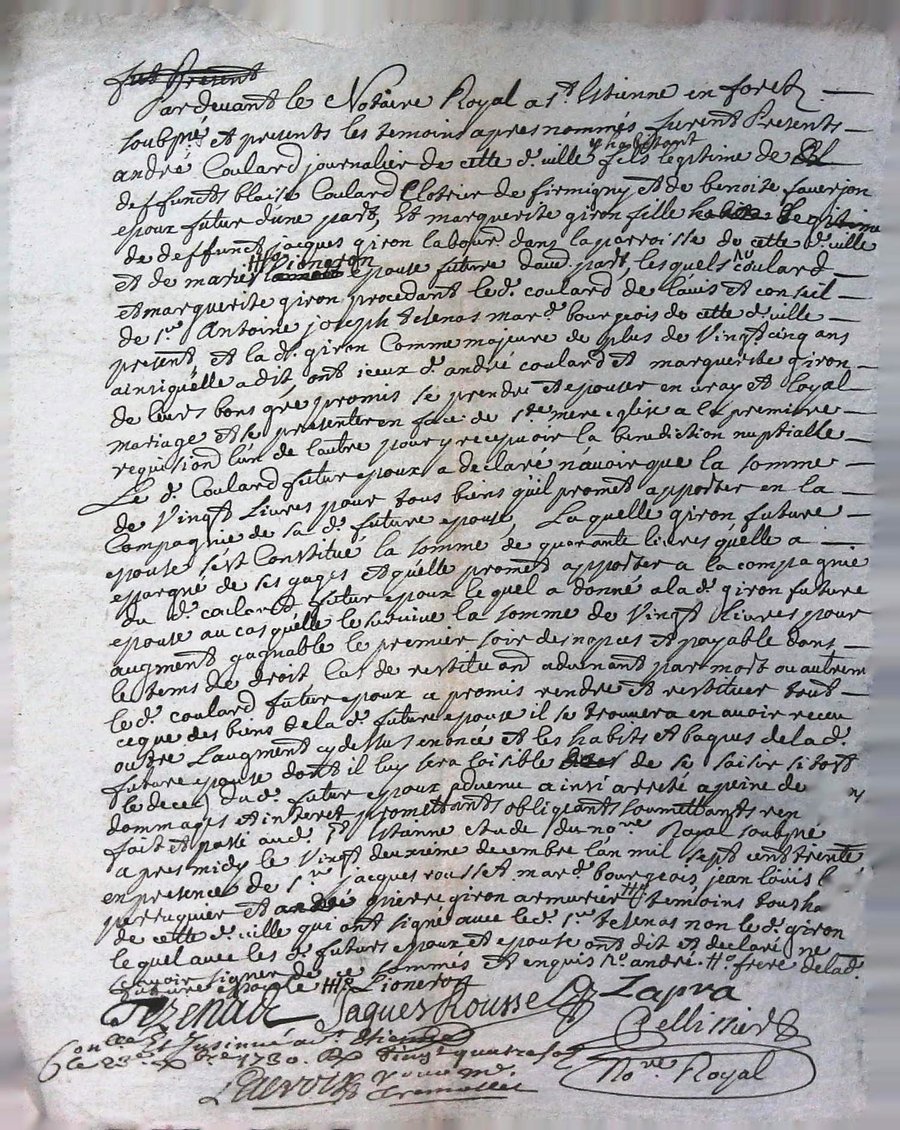 fut Present
Pardevant le Notaire Royal a St. Etienne en foretz
soubné et presents les temoins apres nommés furent Presents
andré Coulard journalier de cette d. ville y habitant fils legitime de
deffunts blaise Coulard Clotrier de firmigny et de benoite faverjon
epoux futur dune part, Et marguerite giron fille habita Legitime
de deffunct jacques giron labour. dans la parroisse de cette d. ville
et de marie Lioneron epouse future daud. part, lesquels Coulard
et marguerite giron procedant le d. coulard de lauis et conseil
de Sr. Antoine joseph tezenas mard. bourgeois de cette d. ville
present, et la d. giron Comme majeure de plus de vingt cinq ans
ainsi quelle a dit, ont iceux d. andré coulard et marguerite giron
de leurs bons gré promis se prendre et epouser en vray et loyal
mariage et se presenter en face de Ste. mere eglise a la premiere
requision lun de lautre pour y recepuoir la benediction nuptialle
Le d. Coulard futur epoux a declaré nauoir que la somme
de Vingt Livres pour tous biens quil promet apporter en la
Compagnie de sa d. future epouse, Laquelle giron future
epouse sest Constitué la somme de quarante livres quelle a
epargné de ses gages et quelle promet apporter a la compagnie
du d. coulard futur epoux lequel a donné a la d. giron future
epouse au cas quelle le suruive la somme de Vingt Livres pour
augment gagnable le premier soir des nopces et payable dans
le tems de droit Cas de restitu and aduenant par mort ou autrem
le d. coulard futur epoux a promis rendre et restituer tout
ceque des biens de la d. future epouse il se trouuera en auoir receu
outre Laugment cy dessus enoncé et les habits et bagues de la d.
future epouse dont il luy sera loisible de se saisir sitost
le deces du d. futur epoux aduenu ainsi arreté a peine de
dommages et interet promettants obligeants soumettants ren
fait et passé aud. St. Etienne etude du nore. Royal soubné
apres midy le Vingt deuxieme decembre lan mil sept cent trente
en presence de Sr. jacques rousset mard. bourgeois, jean loüis
perruquier et andré pierre giron armurier temoins tous ha
de cette d. ville qui ont signé avec le d. Sr. tezenas non le d. giron
lequel avec les d. futurs epoux et epouse ont dit et declaré ne
scavoir signer de ce sommés et enquis no. andré. frere de la d.
future epouse Lioneron
Tezenas Jaques Rousset Lapra
Pellissier
Insinué a St. Etienne
le 23e. xbre. 1730. Vingt quatre sol
Nore. Royal